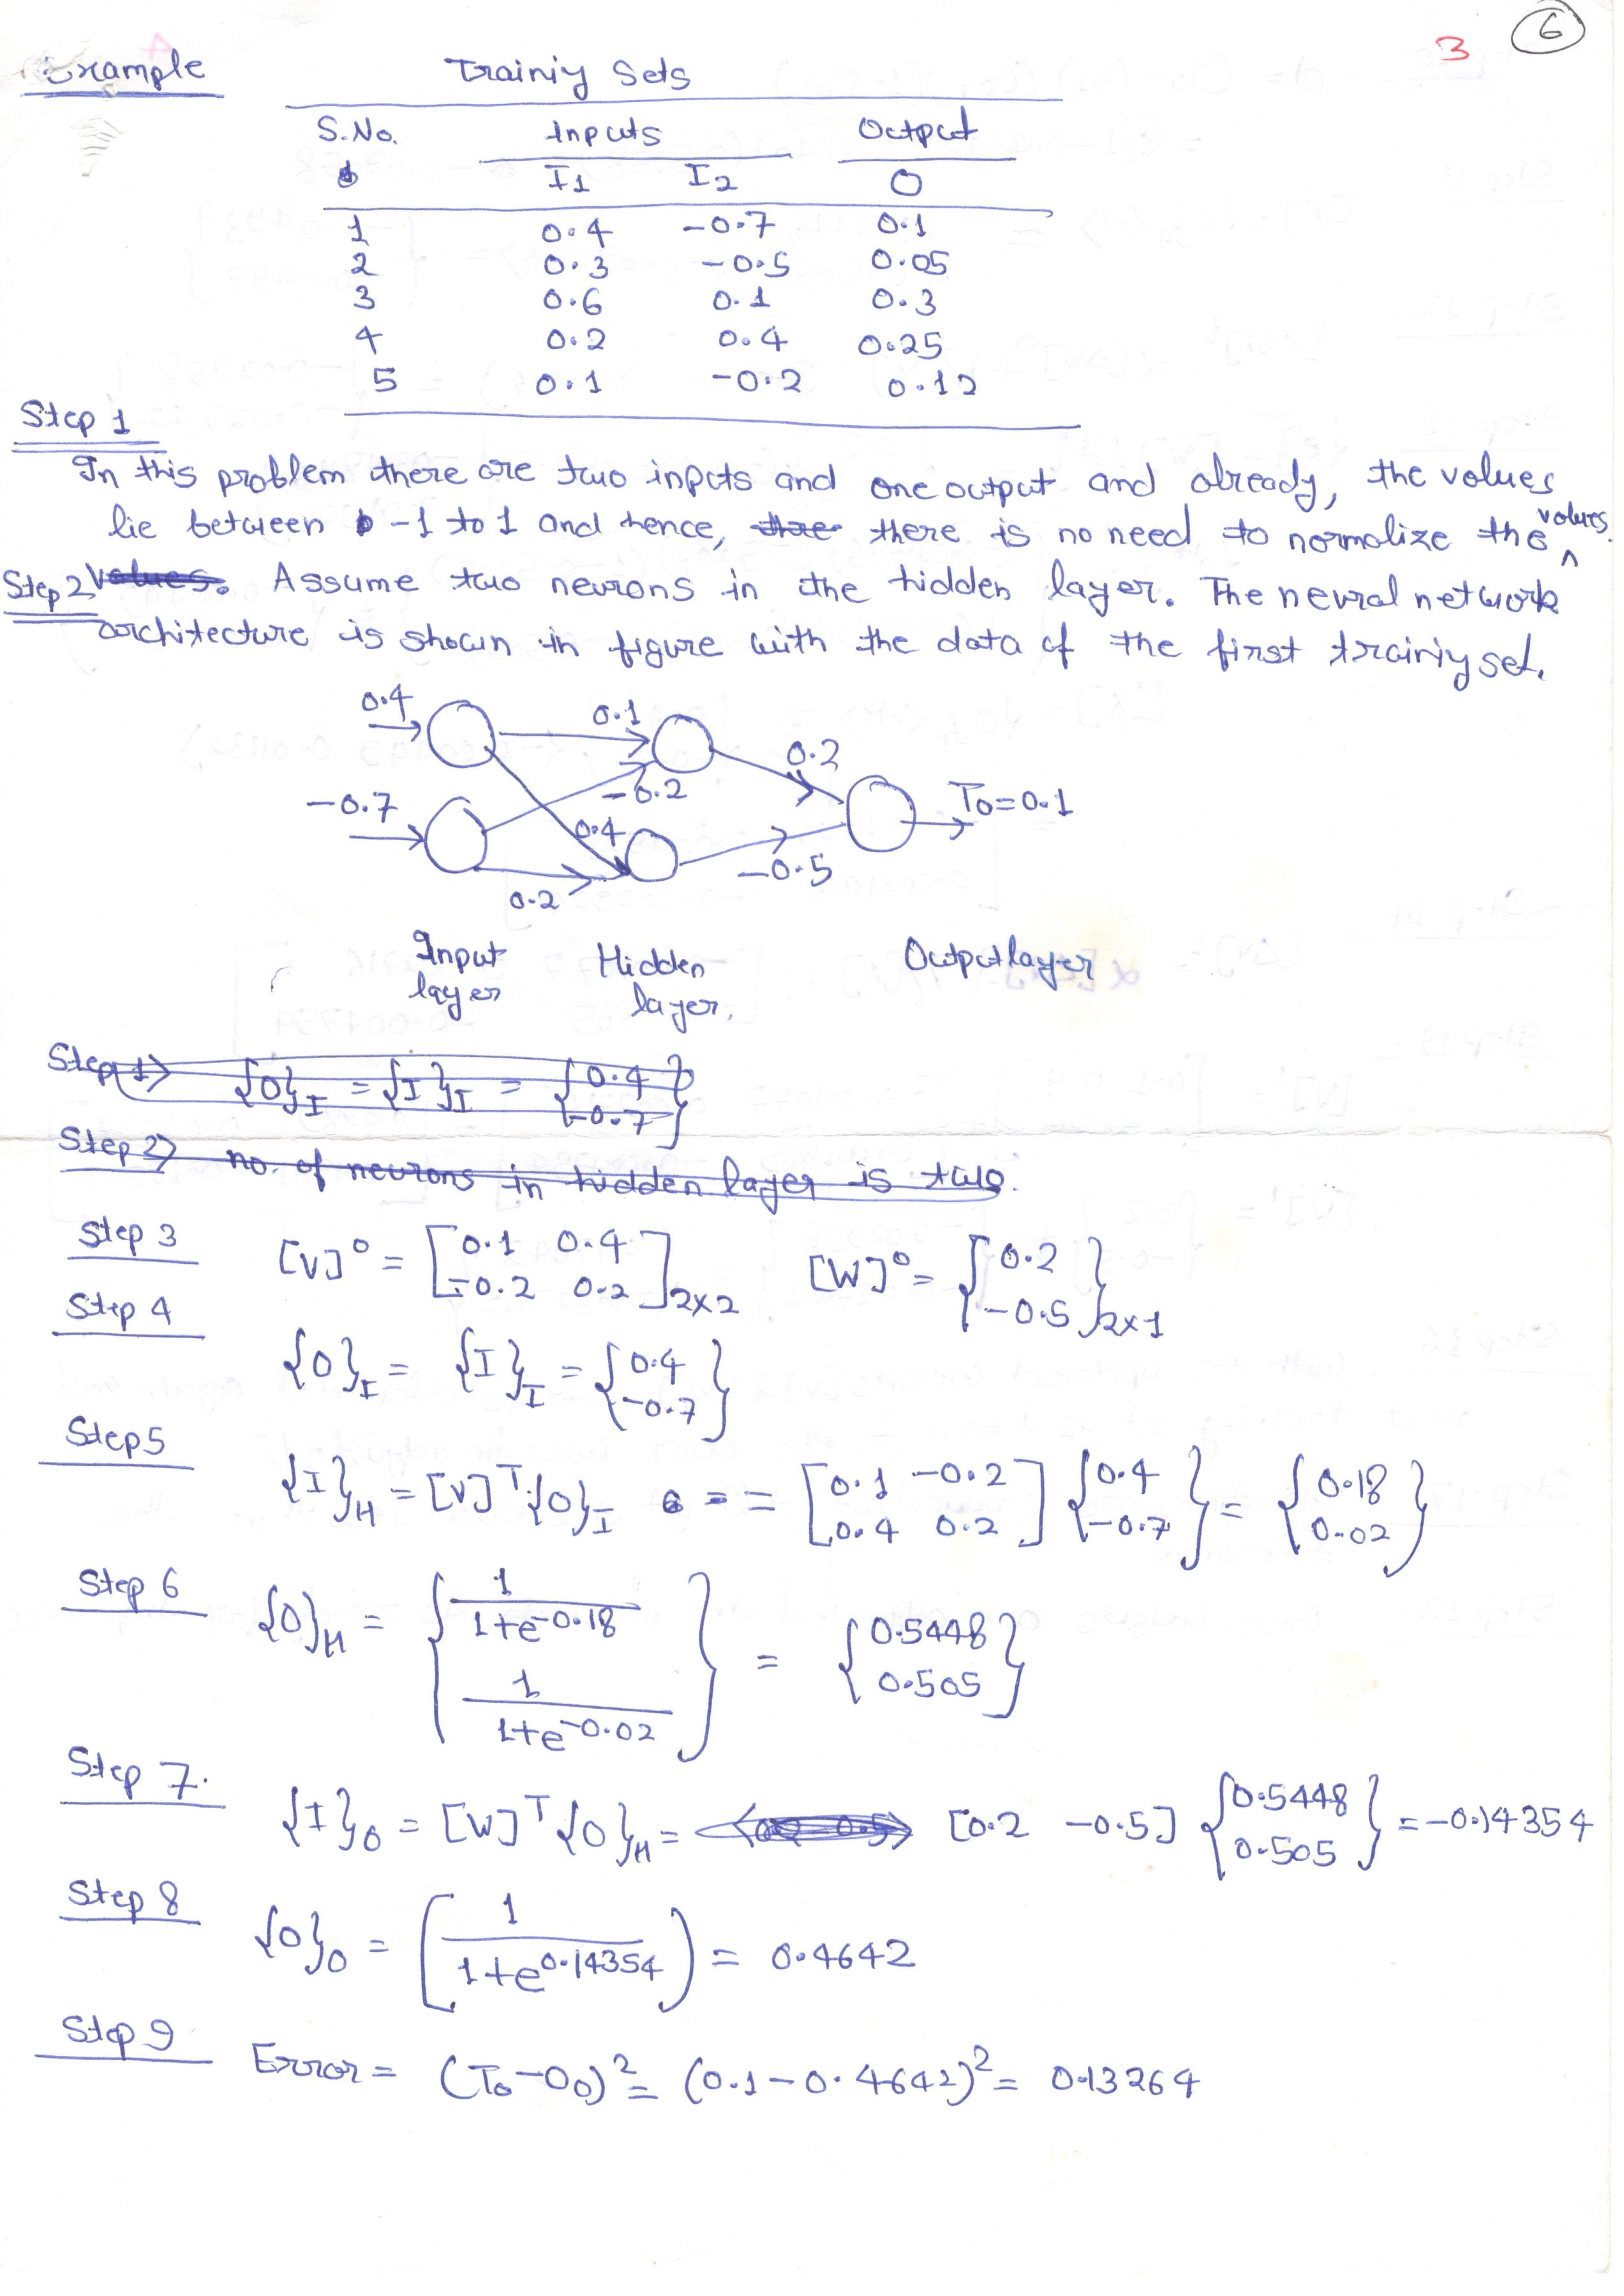 3 6
Example Trainiy Sets
S.No. Inputs Output
I1 I2 O
1 0.4 -0.7 0.1
2 0.3 -0.5 0.05
3 0.6 0.1 0.3
4 0.2 0.4 0.25
5 0.1 -0.2 0.12
Step 1
In this problem there are two inputs and one output and already, the values
lie between -1 to 1 and hence, there is no need to normalize the values.
Step 2 Assume two neurons in the hidden layer. The neural network
architecture is shown in figure with the data of the first trainiy set.
0.4 0.1 0.2
-0.7 -0.2 0.4 T0=0.1
0.2 -0.5
Input layer Hidden layer. Output layer
Step 1) {O}I = {I}I = {0.4 -0.7}
Step 2) no. of neurons in hidden layer is two.
Step 3 [V]⁰ = [0.1 0.4 -0.2 0.2]2x2 [W]⁰ = {0.2 -0.5}2x1
Step 4
{O}I = {I}I = {0.4 -0.7}
Step 5
{I}H = [V]ᵀ{O}I = = = [0.1 -0.2 0.4 0.2] {0.4 -0.7} = {0.18 0.02}
Step 6
{O}H = {1/1+e^-0.18 1/1+e^-0.02} = {0.5448 0.505}
Step 7.
{I}O = [W]ᵀ{O}H = [0.2 -0.5] {0.5448 0.505} = -0.14354
Step 8
{O}O = (1/1+e^0.14354) = 0.4642
Step 9
Error = (T0-O0)² = (0.1-0.4642)² = 0.13264